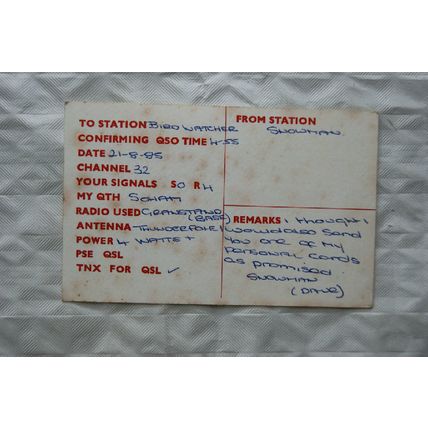 TO STATION BIRD WATCHER
CONFIRMING QSO TIME 4.55
DATE 21-8-85
CHANNEL 32
YOUR SIGNALS SO R4
MY QTH SOHAM
RADIO USED GRANSTAND
(BASE)
ANTENNA THUNDERPOLE 1
POWER 4 WATTS +
PSE QSL
TNX FOR QSL ✓
FROM STATION
SNOWMAN
REMARKS I thought I
would also send
you one of my
personal cards
as promised
SNOWMAN
(DAVE)